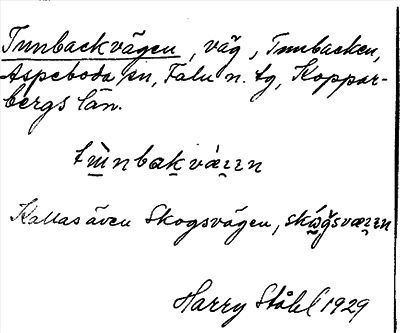 Tunbackvägen, väg, Tunbacken,
Aspeboda sn, Falu n. tg, Koppar-
bergs län.
Kallas även Skogsvägen,
Harry Ståhl 1929